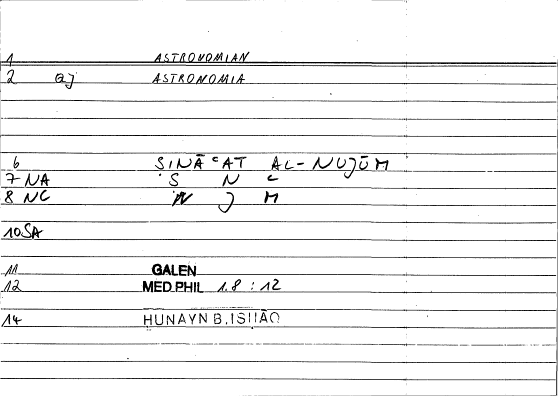 1 ASTRONOMIAN
2 QJ ASTRONOMIA
6 SINĀʿAT AL-NUJŪM
7 NA S N ʿ
8 NC N J M
10 SA
11 GALEN
12 MED.PHIL 1.8 : 12
14 HUNAYN B. ISHĀQ